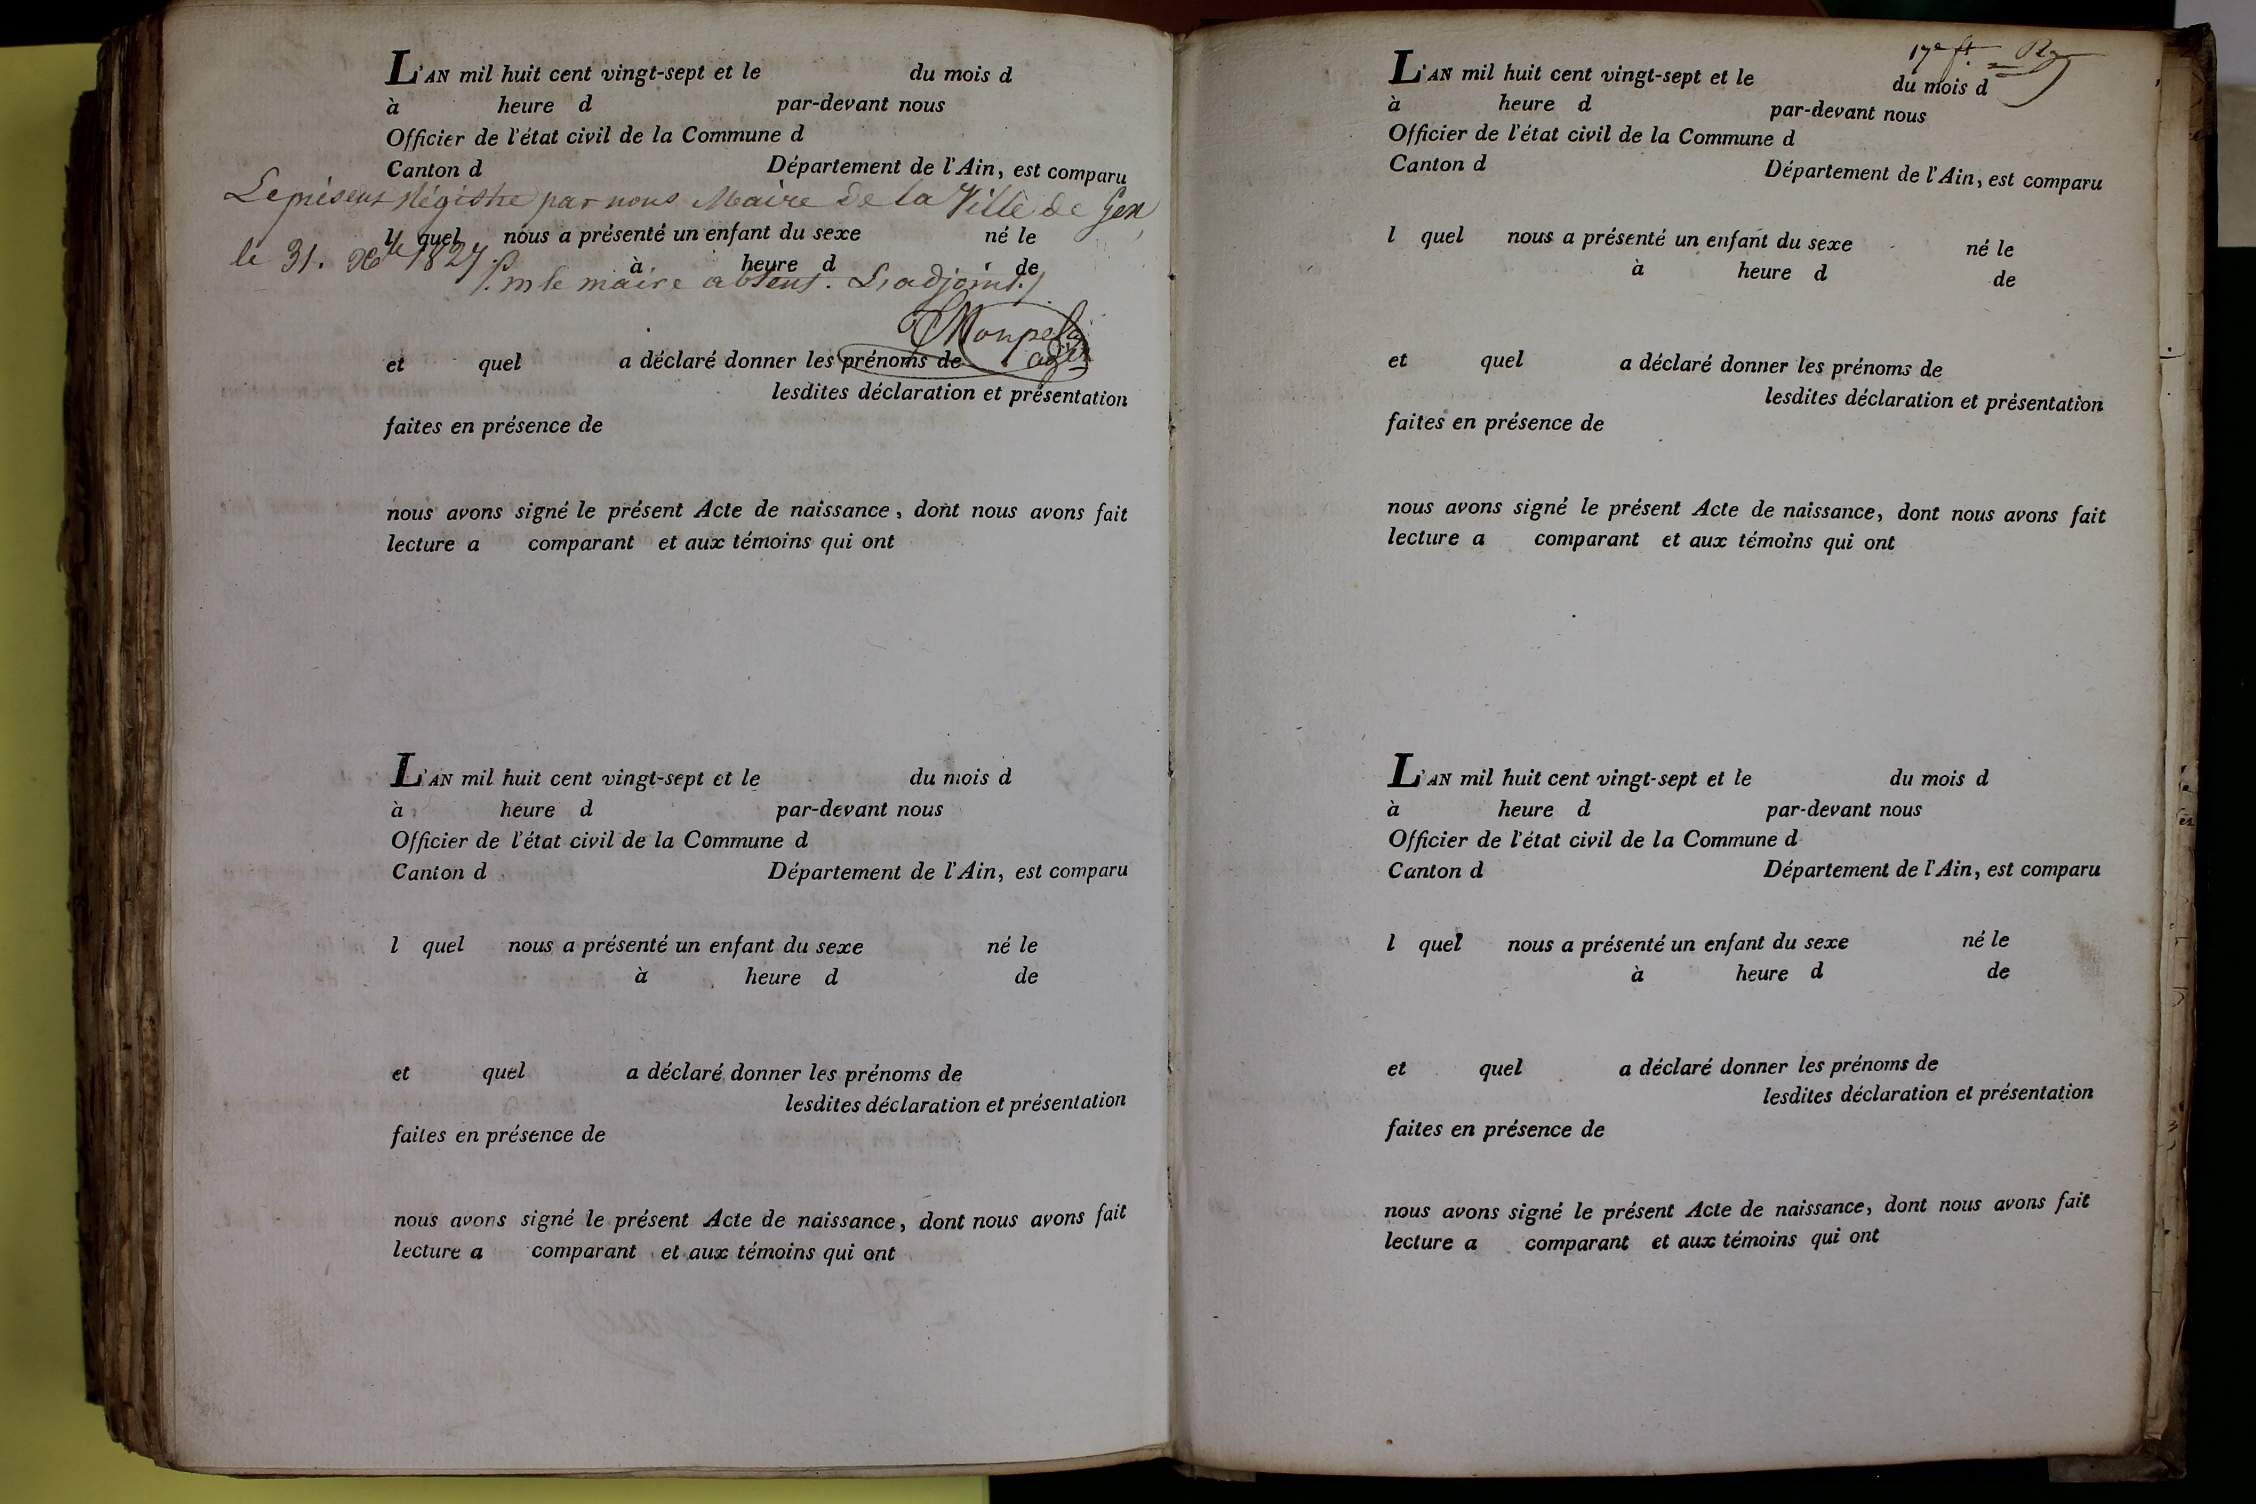 L'AN mil huit cent vingt-sept et le du mois d
à heure d par-devant nous
Officier de l'état civil de la Commune d
Canton d Département de l'Ain, est comparu
Le présent Régistre par nous Maire de la Ville de Gex,
l quel nous a présenté un enfant du sexe né le
le 31. Xbre 1827.
à heure d de
le maire absent. L'adjoint.
et quel a déclaré donner les prénoms de
lesdites déclaration et présentation
faites en présence de
nous avons signé le présent Acte de naissance, dont nous avons fait
lecture a comparant et aux témoins qui ont
L'AN mil huit cent vingt-sept et le du mois d
à heure d par-devant nous
Officier de l'état civil de la Commune d
Canton d Département de l'Ain, est comparu
l quel nous a présenté un enfant du sexe né le
à heure d de
et quel a déclaré donner les prénoms de
lesdites déclaration et présentation
faites en présence de
nous avons signé le présent Acte de naissance, dont nous avons fait
lecture a comparant et aux témoins qui ont
17e ft.
L'AN mil huit cent vingt-sept et le du mois d
à heure d par-devant nous
Officier de l'état civil de la Commune d
Canton d Département de l'Ain, est comparu
l quel nous a présenté un enfant du sexe né le
à heure d de
et quel a déclaré donner les prénoms de
lesdites déclaration et présentation
faites en présence de
nous avons signé le présent Acte de naissance, dont nous avons fait
lecture a comparant et aux témoins qui ont
L'AN mil huit cent vingt-sept et le du mois d
à heure d par-devant nous
Officier de l'état civil de la Commune d
Canton d Département de l'Ain, est comparu
l quel nous a présenté un enfant du sexe né le
à heure d de
et quel a déclaré donner les prénoms de
lesdites déclaration et présentation
faites en présence de
nous avons signé le présent Acte de naissance, dont nous avons fait
lecture a comparant et aux témoins qui ont